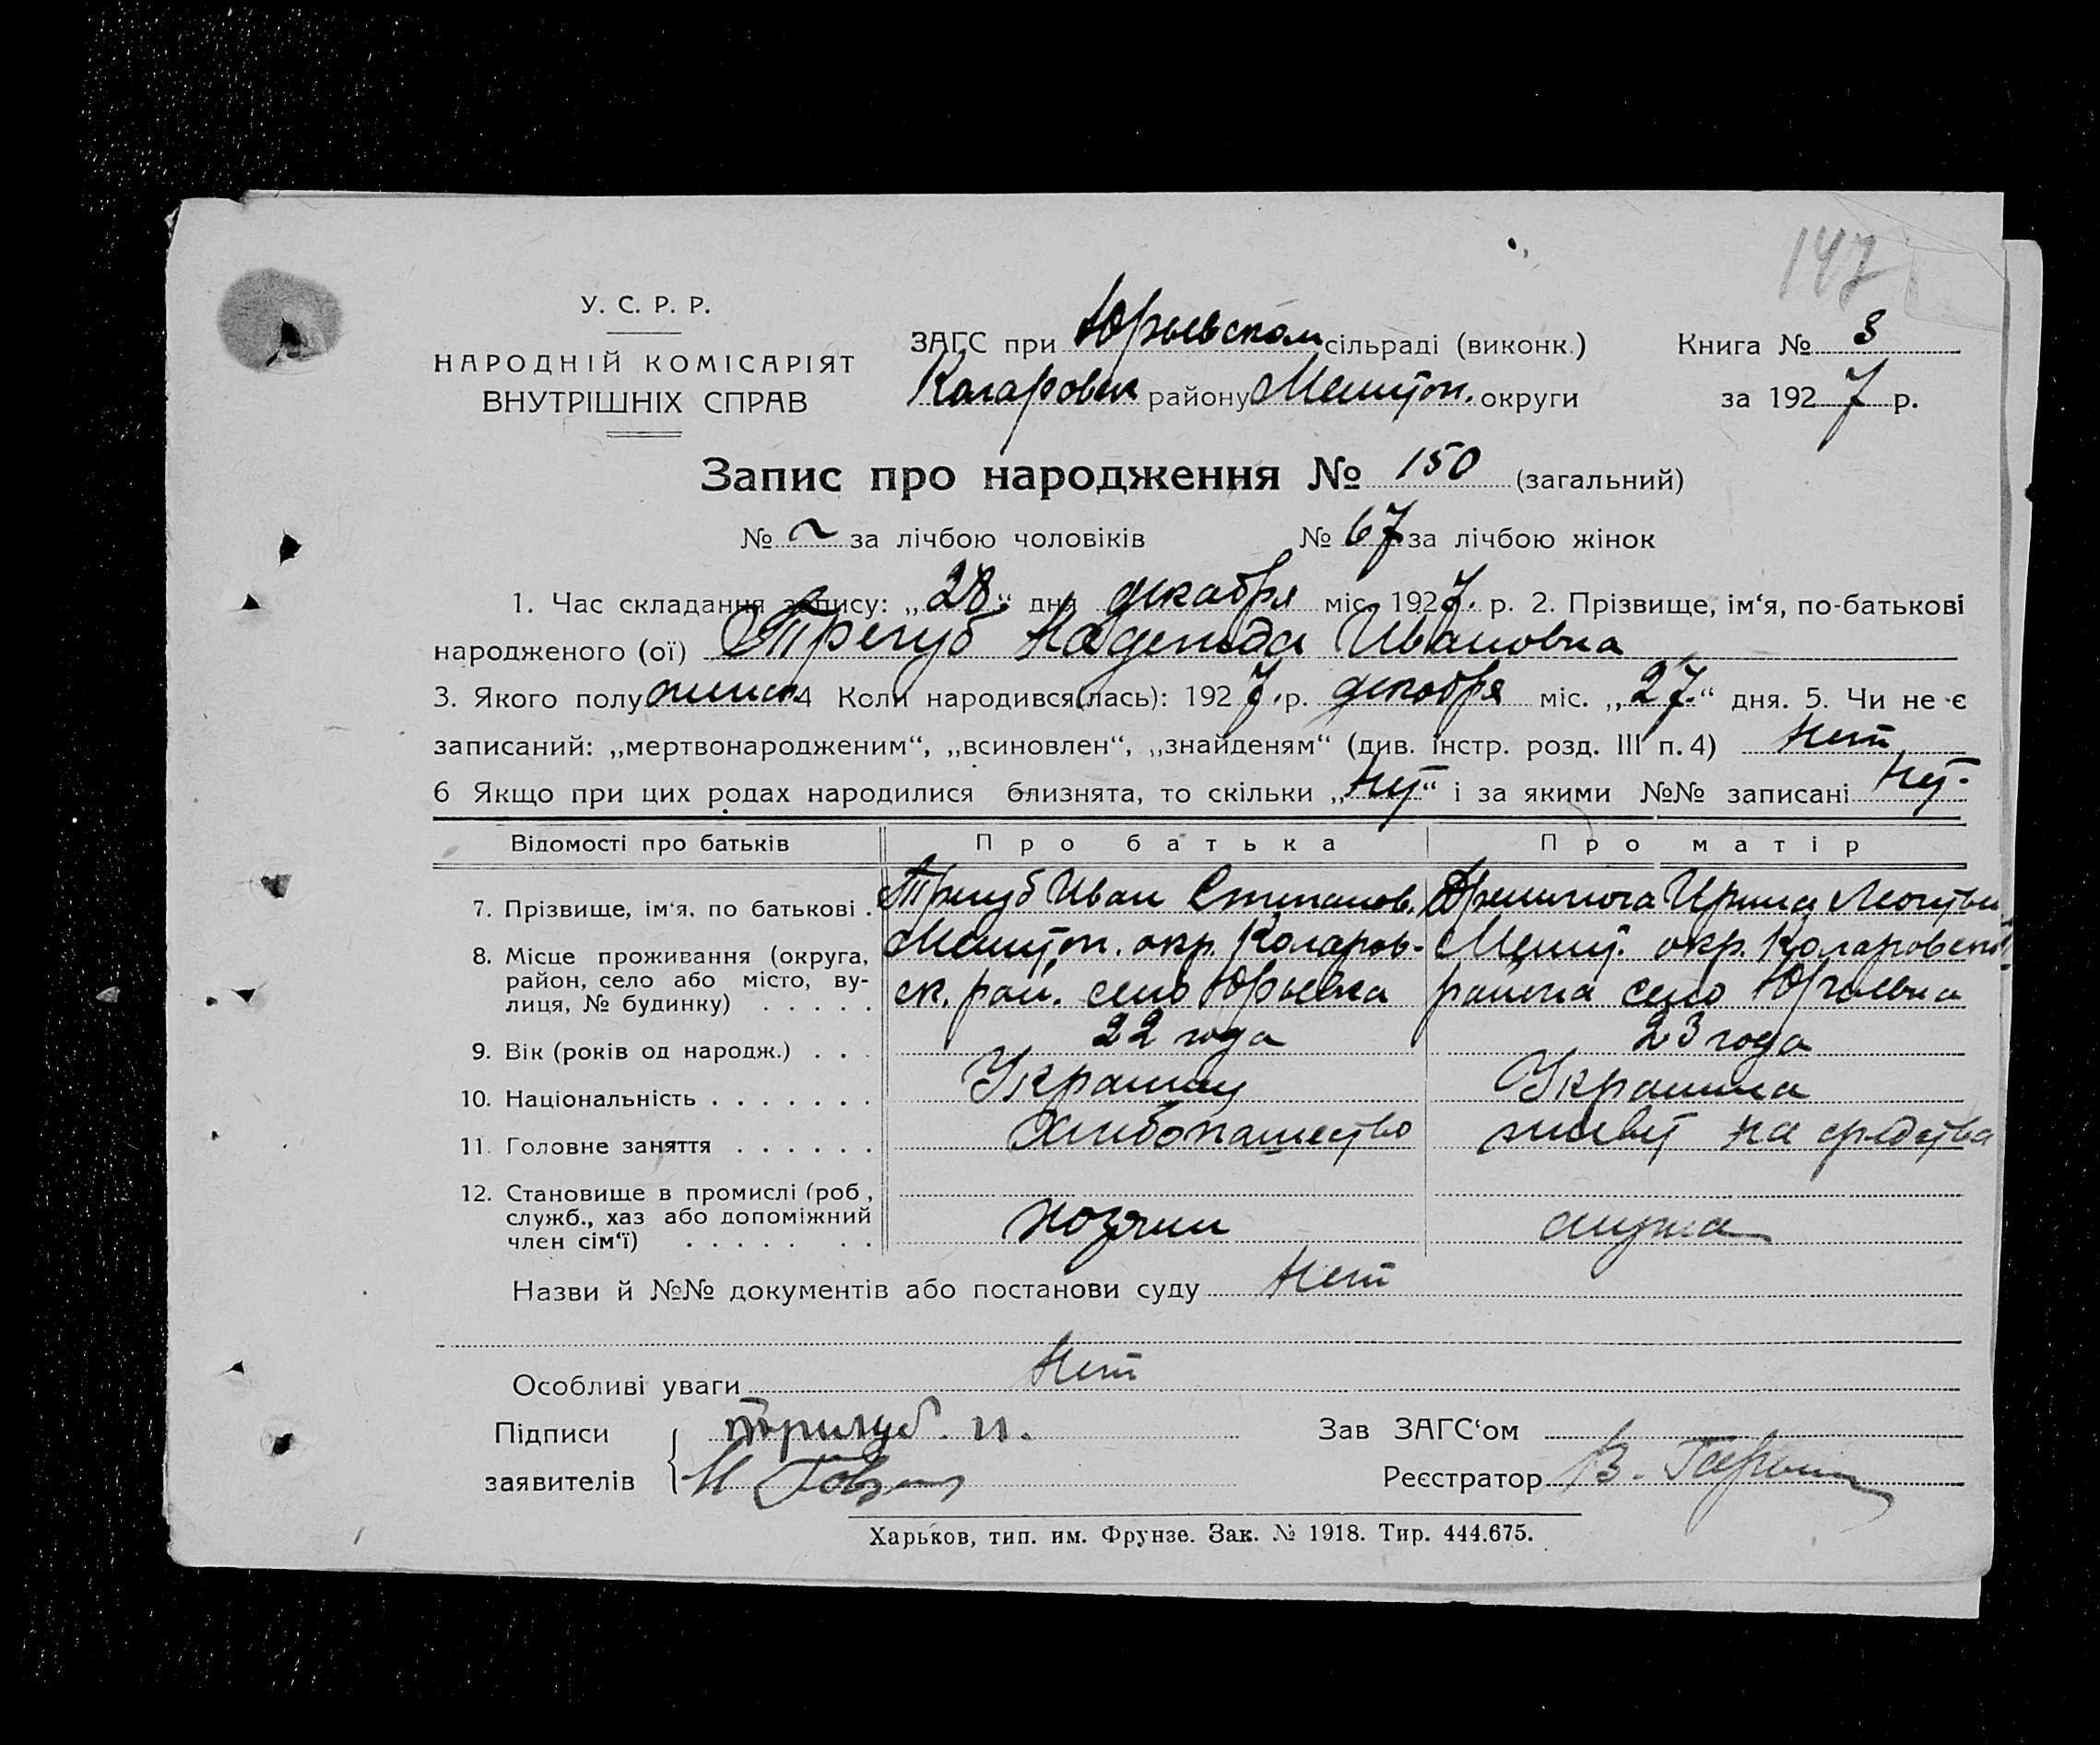 147
У. С. Р. Р.
НАРОДНІЙ КОМІСАРІЯТ
ВНУТРІШНІХ СПРАВ
ЗАГС при Юрьевском сільраді (виконк.)
Коларовск району Мелитоп. округи
Книга № 3
за 1927 р.
Запис про народження № 150 (загальний)
№ ~ за лічбою чоловіків № 67 за лічбою жінок
1. Час складання запису: „28“ дня декабря міс. 1927. р. 2. Прізвище, ім‘я, по-батькові
народженого (ої) Трегуб Надежда Ивановна
3. Якого полу женск. 4 Коли народився(лась): 1927. р. декабря міс. „27.“ дня. 5. Чи не є
записаний: „мертвонародженим“, „всиновлен“, „знайденям“ (див. інстр. розд. III п. 4) Нет
6 Якщо при цих родах народилися близнята, то скільки „Нет“ і за якими №№ записані Нет.
Відомості про батьків Про батька Про матір
7. Прізвище, ім‘я, по батькові . Трегуб Иван Степанов. Ирина Леонтьев.
8. Місце проживання (округа, Мелитоп. окр. Коларов- Мелит. окр. Коларовского
район, село або місто, ву-
лиця, № будинку) . . . . . ск. рай. село Юрьевка района село Юрьевка
9. Вік (років од народж.) . . . 22 года 23 года
10. Національність . . . . . . . Украинец Украинка
11. Головне заняття . . . . . . Хлебопашество живет на средства
12. Становище в промислі (роб.,
служб., хаз або допоміжний
член сім‘ї) . . . . . . . хозяин мужа
Назви й №№ документів або постанови суду Нет
Особливі уваги Нет
Підписи трегуб. и. Зав ЗАГС‘ом
заявителів Реєстратор В.
Харьков, тип. им. Фрунзе. Зак. № 1918. Тир. 444.675.